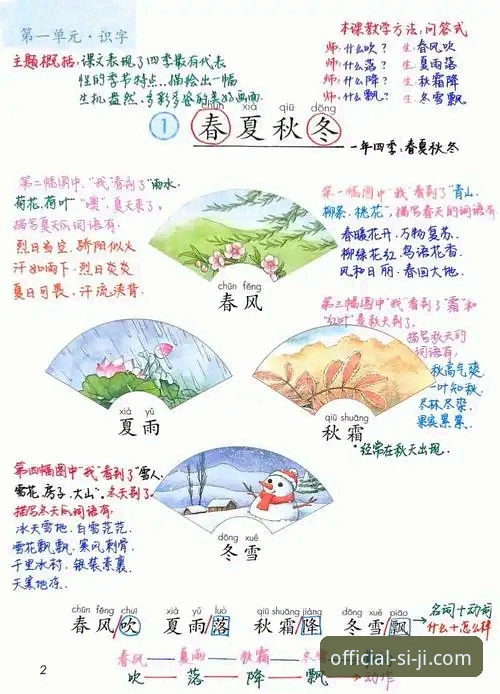 第一单元·识字
主题概括：课文表现了四季最有代表
性的季节特点，描绘出一幅
生机盎然、多彩多姿的美好画面
本课教学方法：问答式
师：什么吹？ 生：春风吹
师：什么落？ 生：夏雨落
师：什么降？ 生：秋霜降
师：什么飘？ 生：冬雪飘
chūn xià qiū dōng
1 春夏秋冬
一年四季：春夏秋冬
第二幅图中，“我”看到了“雨水、
荷花、荷叶”“噢”，夏天来了。
描写夏天的词语有：
烈日当空、骄阳似火
汗如雨下、烈日炎炎
夏日可畏、汗流浃背、
第一幅图中，“我”看到了“青山、
柳条、桃花”，描写春天的词语有：
春暖花开、万物复苏、
柳绿花红、鸟语花香、
风和日丽、春回大地、
chūn fēng
春风
第三幅图中“我”看到了“霜”和
“红叶”是秋天到了。
描写秋天的
词语有：
秋高气爽
一叶知秋
层林尽染
果实累累
xià yǔ
夏雨
qiū shuāng
秋霜
经常在秋天出现
第四幅图中“我”看到了“雪人、
雪花、房子、大山”，冬天到了。
描写冬天的词语有：
冰天雪地、白雪茫茫、
雪花飘飘、寒风刺骨、
千里冰封、银装素裹、
天寒地冻、
dōng xuě
冬雪
chūn fēng chuī xià yǔ luò qiū shuāng jiàng dōng xuě piāo
春风/吹 夏雨/落 秋霜/降 冬雪/飘
名词+动词
什么+怎么样
春风 夏雨 秋霜 冬雪
吹 落 降 飘 动作
2
official-si-ji.com